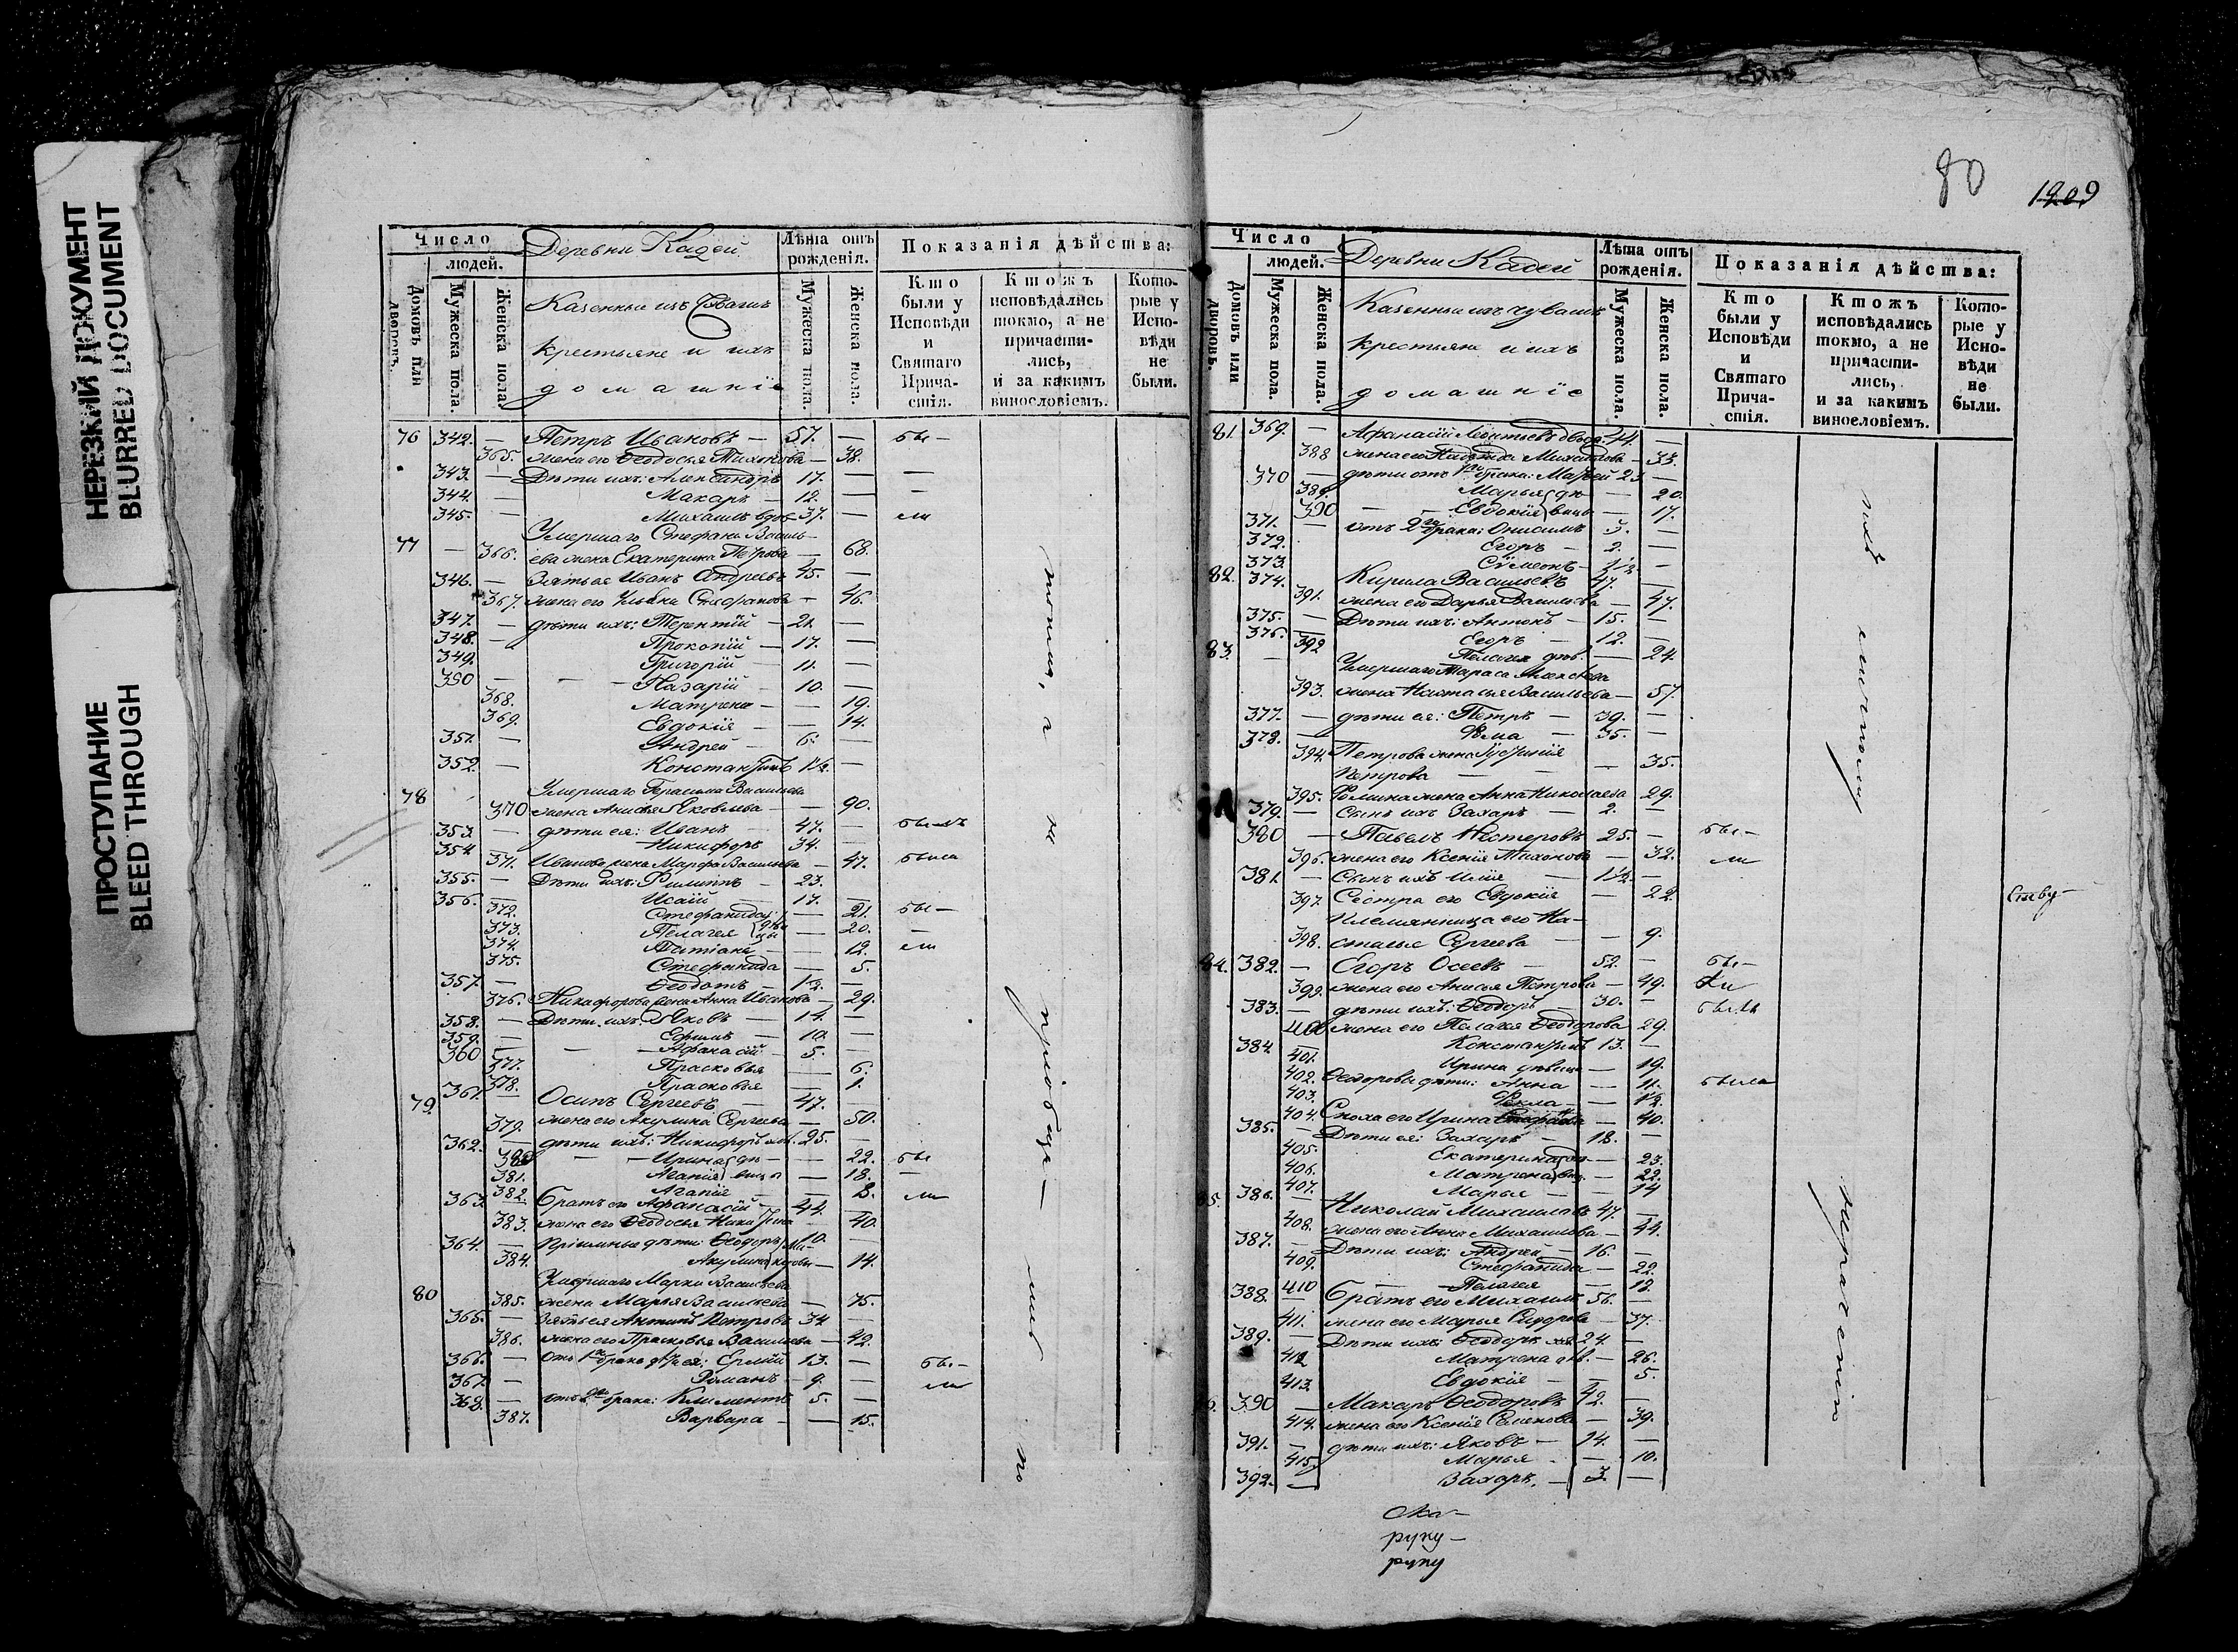 НЕРЕЗКИЙ ДОКУМЕНТ
BLURRED DOCUMENT
ПРОСТУПАНИЕ
BLEED THROUGH
Число
людей.
Домовъ или дворовъ.
Мужеска пола.
Женска пола.
Деревни Кадей
Казенныи изъ Чувашъ
крестьяне и ихъ
домашніе
Лѣта отъ рожденія.
Мужеска пола.
Женска пола.
Показанія дѣйства:
Кто были у Исповѣди и Святаго Причастія.
Ктожъ исповѣдались токмо, а не причастились, и за какимъ винословіемъ.
Которые у Исповѣди не были.
76 342. — Петръ Ивановъ — 57. — бы-
365. жена его Ѳеодосья Тихонова — 38.
343. — Дѣти ихъ: Александръ 17. — —
344. — Макаръ — 12. — —
345. — Михаилъ вдов 37. — ли
Умершаго Стефана Василь-
77 — 366. ева жена Екатерина Петрова — 68.
346. — Зять ея Иванъ Андреевъ 45. —
367. жена его Ульяна Стефанова — 46.
347. — дѣти ихъ: Терентій — 21. —
348. — Прокопій — 17. —
349. Григорій — 11. —
350 — Назарій — 10. —
368. Матрена — — 19.
369. Евдокія — — 14.
351. — Андрей — 6. —
352. — Константинъ 1½. —
Умершаго Герасима Васильева
78 370 жена Анисья Яковлева — — 90.
353. — дѣти ея: Иванъ — 47. — былъ
354 Никифоръ 34. —
371. Иванова жена Марфа Васильева — 47. была
355. — Дѣти ихъ: Филиппъ — 23.
356. — Исаій 17. —
372. Стефанида — 21. бы-
373. Пелагея — 20. —
374. Татіана — 12. ли
375. Стефанида — 5.
357. — Ѳеодотъ — 1½. —
376. Никифорова жена Анна Иванова — 29.
358. — Дѣти ихъ: Яковъ — 14. —
359. — Ефимъ — 10. —
360 — Афанасій — 5. —
377. Прасковья — 6.
378. Прасковья — 1.
79. 361. — Осипъ Сергеевъ — 47. —
379. жена его Акулина Сергеева — 50.
362. — дѣти ихъ: Никифоръ 25. —
380 Ирина — 22. бы
381. Агапія — 18. —
382. Агапія — 3. ли
363. — братъ его Афанасій — 44. —
383. жена его Ѳеодосья Никитина — 40.
364. — Пріемные дѣти: Ѳеодоръ 10. —
384. Акулина — 14.
Умершаго Марка Васильева
80 385. жена Марья Васильева — 75.
365. — Зять ея Антипъ Петровъ 34 —
386. жена его Прасковья Васильева — 42.
366. — Отъ 1го брака дѣти ея: Ермій 13. — бы-
367. — Романъ — 9. — ли
368. — отъ 2го брака: Климентъ 5. —
387. Варвара — — 15.
токмя, а не пріобще- ны по
80
1209
Число
людей.
Домовъ или дворовъ.
Мужеска пола.
Женска пола.
Деревни Кадей
Казенныи изъ чувашъ
крестьяне и ихъ
домашніе
Лѣта отъ рожденія.
Мужеска пола.
Женска пола.
Показанія дѣйства:
Кто были у Исповѣди и Святаго Причастія.
Ктожъ исповѣдались токмо, а не причастились, и за какимъ винословіемъ.
Которые у Исповѣди не были.
81. 369. — Афанасій Леонтьевъ 44. —
388 жена его Надежда Михайлова — 33.
370 — дѣти отъ 1го брака: Матѳей 23. —
389. Марья — 20.
390 Евдокія — 17.
371. — отъ 2го брака: Онисимъ 5. —
372. Егоръ — 2. —
373. Сѵмеонъ — ½. —
82. 374. Кирила Васильевъ 47. —
391. жена его Дарья Васильева — 47.
375. — Дѣти ихъ: Антонъ — 15. —
376. — Егоръ — 12. —
392 Пелагея дѣв. — 24.
83. — Умершаго Тараса Алексѣева
393. жена Настасья Васильева — 57.
377. — дѣти ея: Петръ — 39. —
378. Фома — 35. —
394. Петрова жена Іустинія
Петрова — — 35.
395. Фомина жена Анна Николаева 29.
379. — Сынъ ихъ Захаръ — 2. —
380 — Павелъ Нестеровъ 25. — бы-
396. жена его Ксенія Тихонова — 32. ли
381. — Сынъ ихъ Илія — 1½. —
397. Сестра его Евдокія — 22.
Племянница его На-
398. стасья Сергеева — — 9.
84. 382. — Егоръ Осиевъ — 52. — бы-
399. жена его Анисья Петрова — 49. ли
383. — дѣти ихъ: Ѳеодоръ — 30. — былъ
400 жена его Пелагея Ѳеодорова 29.
384. Константинъ 13. —
401. Ирина дѣвица — 19.
402. Ѳеодоровы дѣти: Анна — 11. была
403. Ѳекла — — 1½.
404. Сноха его Ирина — 40.
385. — Дѣти ея: Захаръ — 18. —
405. Екатерина — 23.
406. Матрена — 22.
407. Марья — — 14
85. 386. — Николай Михайловъ 47. —
408. жена его Анна Михайлова — 44.
387. — Дѣти ихъ: Андрей — 16. —
409. Стефанида — 22.
410 Пелагея — 12.
388. — братъ его Михаилъ 56. —
411. жена его Марья Сидорова — 37.
389. — Дѣти ихъ Ѳеодоръ 24. —
412 Матрена дѣв. — 26.
413. Евдокія — — 5.
86. 390 — Макаръ Ѳеодоровъ 42. —
414. жена его Ксенія Семенова — 39.
391. — дѣти ихъ: Яковъ — 14. —
415. Марья — — 10.
392. — Захаръ. — 3. —
нераченію
руку-
руку